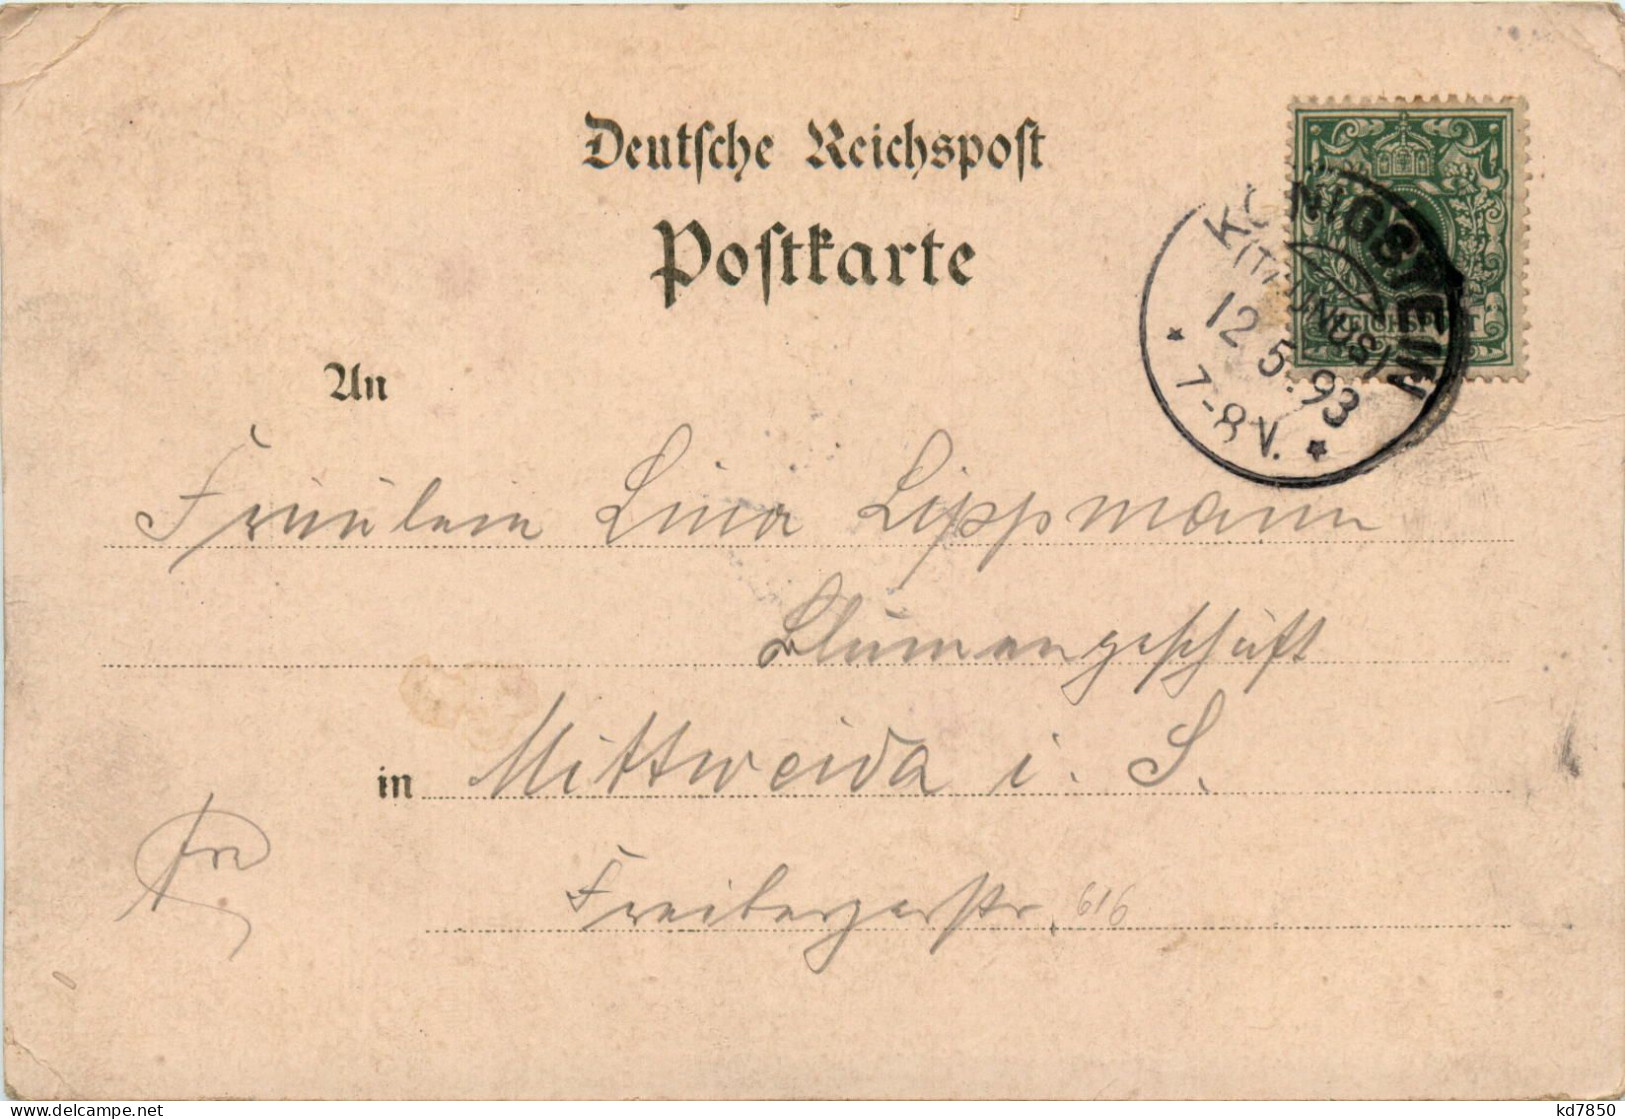 Deutsche Reichspost
Postkarte
KÖNIGSTEIN
(TAUNUS)
12 5. 93
7-8 V.
REICHSPOST
An
Fräulein Lina Lippmann
Blumengeschäft
in Mittweida i. S.
Freibergerstr. 616
kd7850